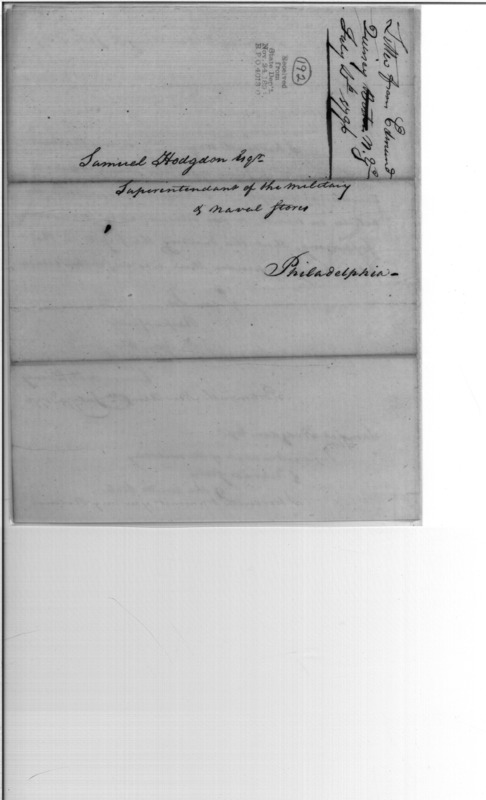 Letter from Edmund
Quincy
July 1796
192
Received
From
State Dep't
Nov. 24, 189
R. P. O.
Samuel Hodgdon Esqr
Superintendant of the military
& Naval Stores
Philadelphia